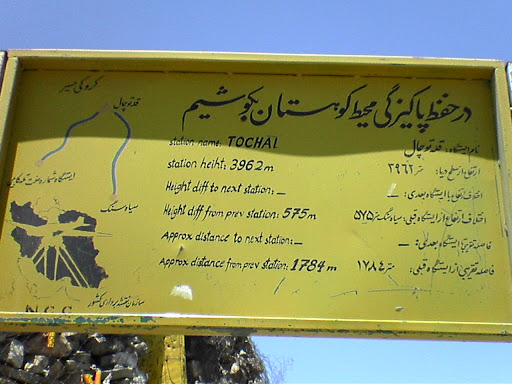 در حفظ پاکیزگی محیط کوهستان بکوشیم
کروکی مسیر
قله توچال
سیاه سنگ
سازمان نقشه برداری کشور
N.C.C
station name: TOCHAL
station heiht: 3962 m
Height diff to next station: _
Height diff from prev station: 575 m
Approx distance to next station: _
Approx distance from prev station: 1784 m
نام ایستگاه: قله توچال
ارتفاع از سطح دریا: ۳۹۶۲ متر
اختلاف ارتفاع با ایستگاه بعدی: _
اختلاف ارتفاع از ایستگاه قبلی: سیاه سنگ ۵۷۵ متر
فاصله تقریبی تا ایستگاه بعدی: _
فاصله تقریبی از ایستگاه قبلی: ۱۷۸۴ متر